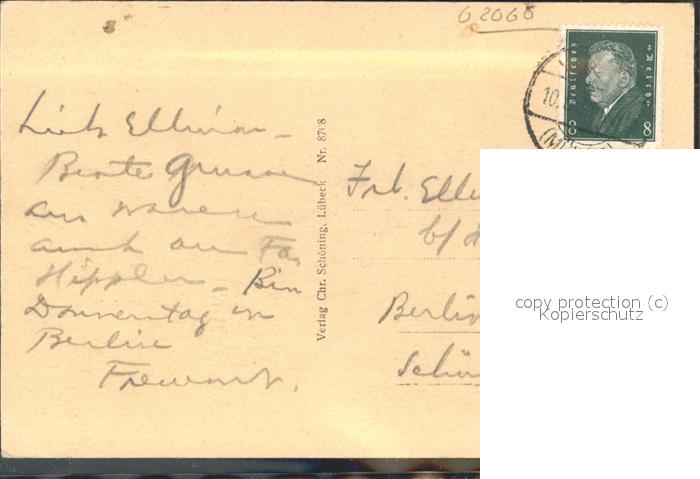 62068
Deutsches Reich
8 8
10.
(M
Beste Grüsse
aus Waren
auch an Fa.
Hippler – Bin
Donnerstag in
Berlin
Verlag Chr. Schöning, Lübeck Nr. 8708
Frl. Elli
b/
Berlin
Schö
copy protection (c)
Kopierschutz